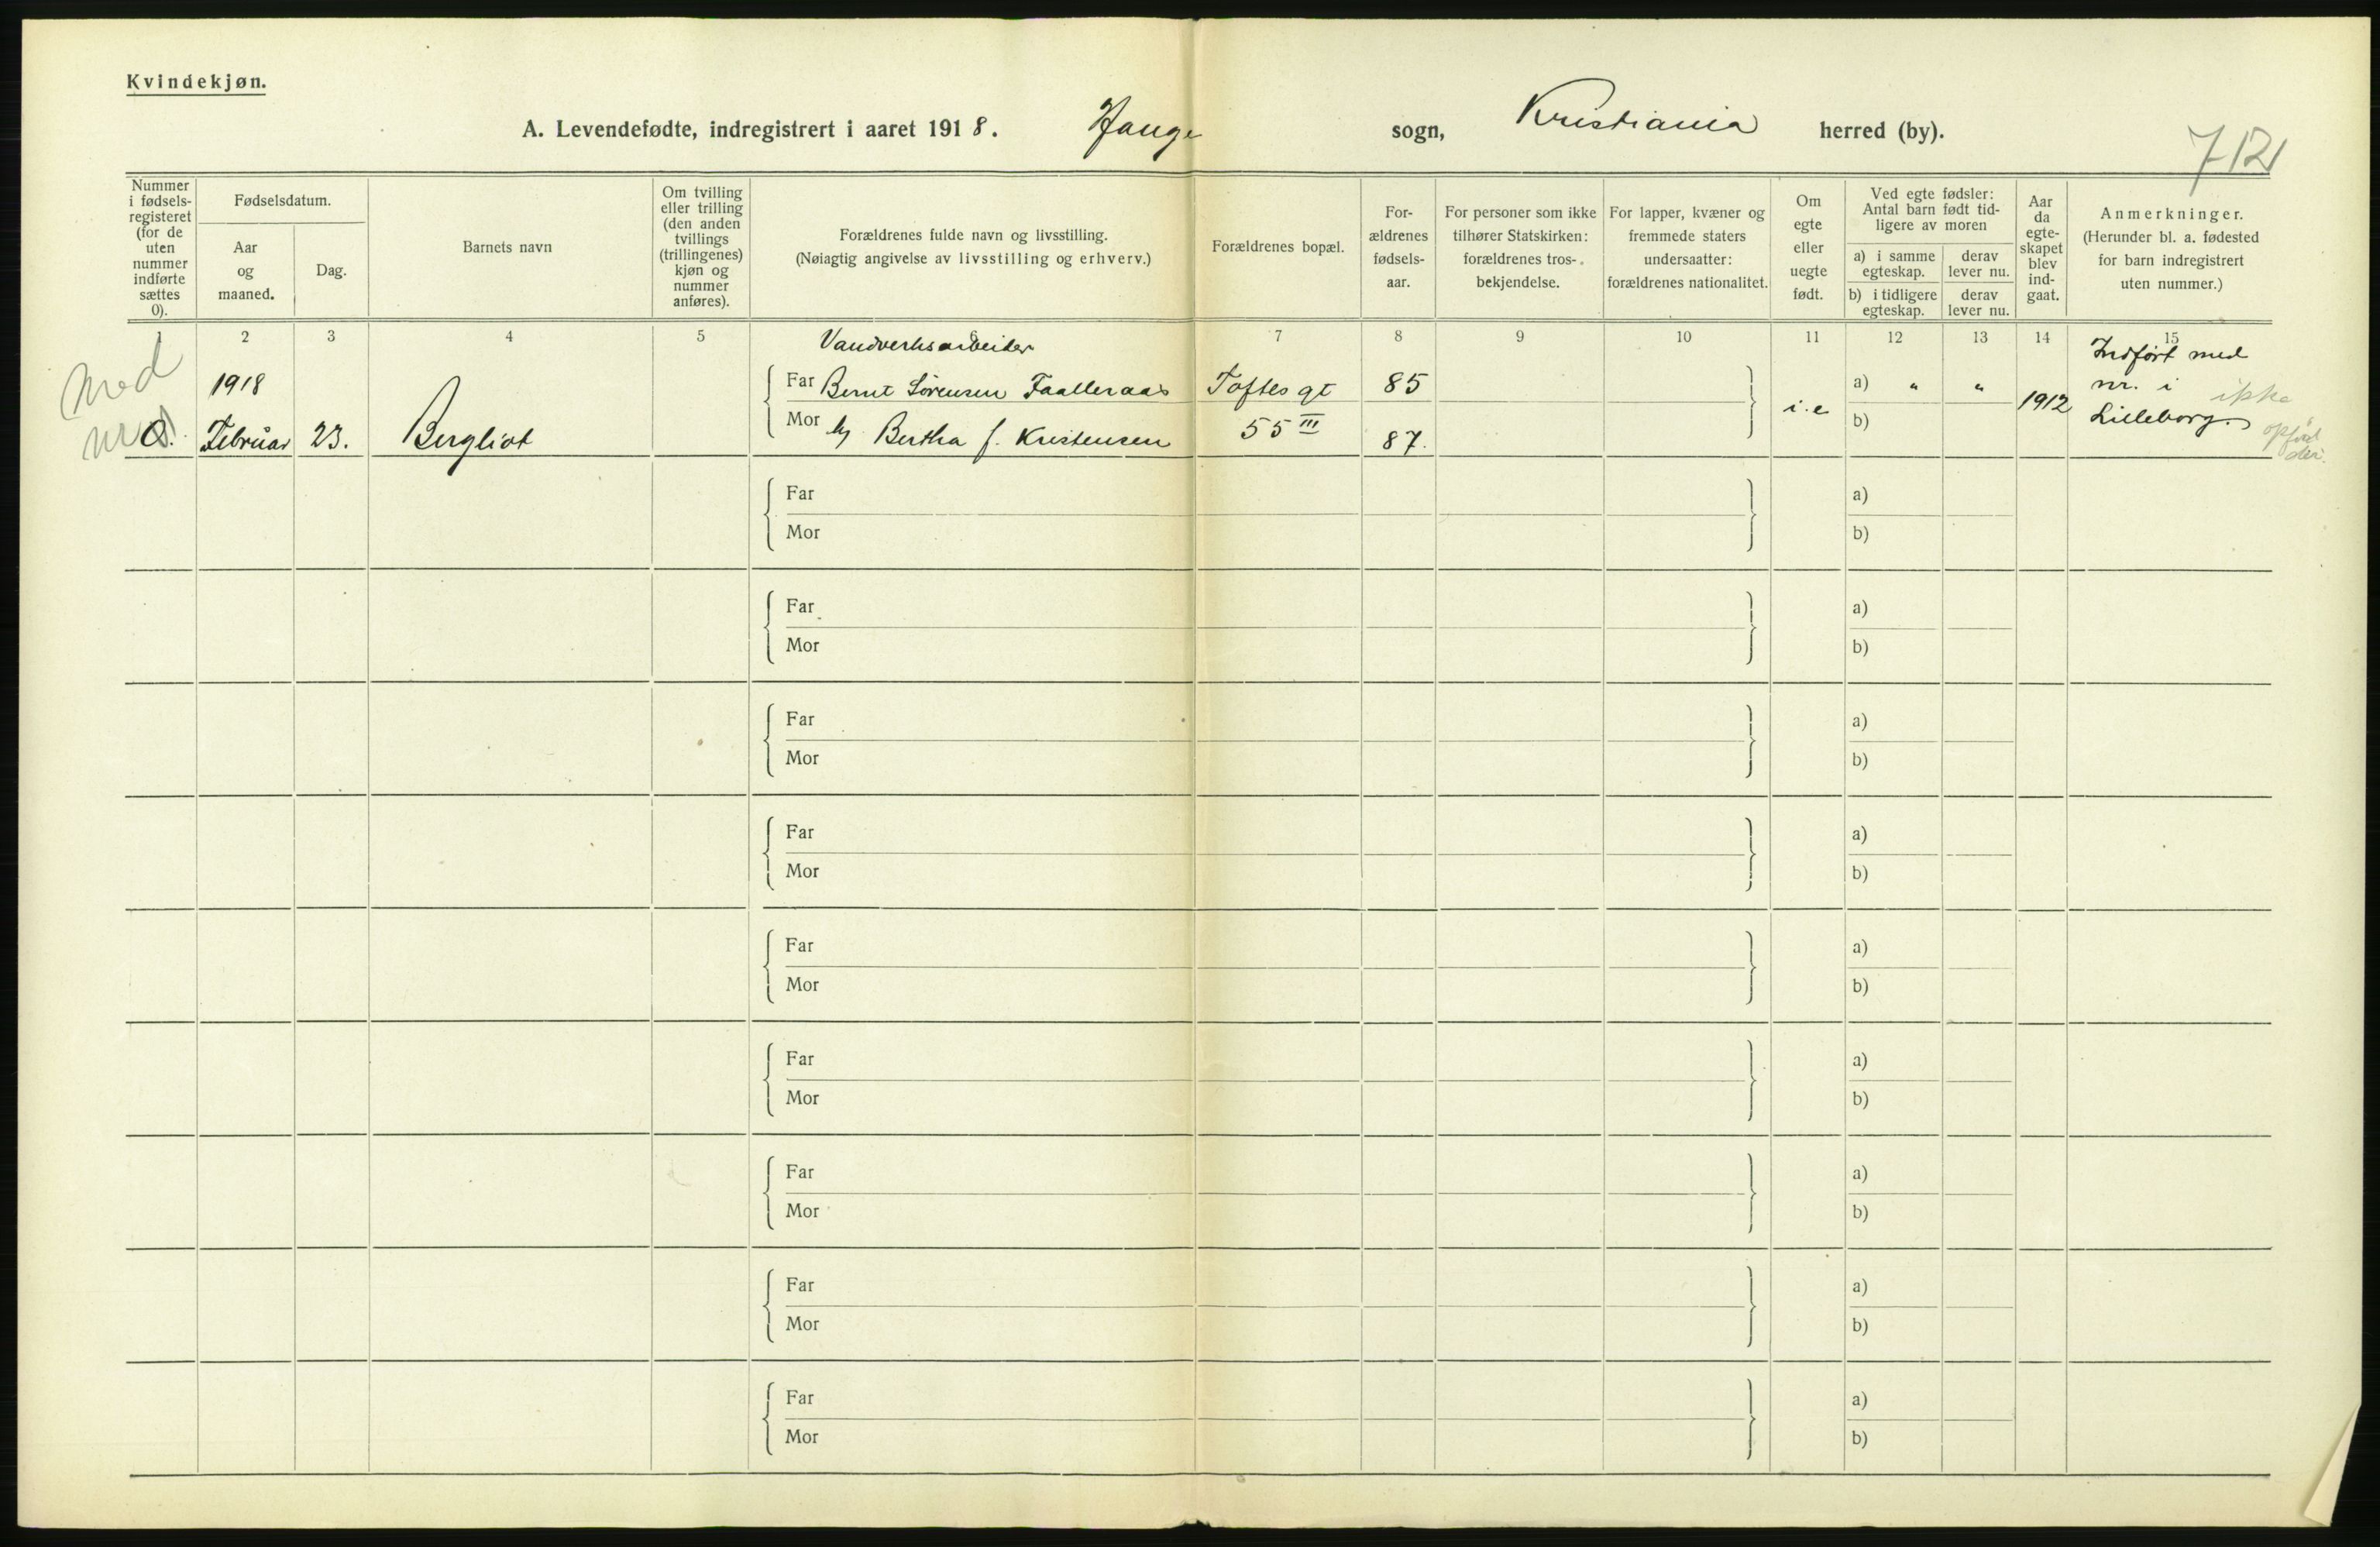 Kvindekjøn.
A. Levendefødte, indregistrert i aaret 1918. Hauge sogn, Kristiania herred (by).
712
Nummer
i fødsels-
registeret
(for de
uten
nummer
indførte
sættes
0).
Fødselsdatum.
Aar
og
maaned.
Dag.
Barnets navn
Om tvilling
eller trilling
(den anden
tvillings
(trillingenes)
kjøn og
nummer
anføres).
Forældrenes fulde navn og livsstilling.
(Nøiagtig angivelse av livsstilling og erhverv.)
Forældrenes bopæl.
For-
ældrenes
fødsels-
aar.
For personer som ikke
tilhører Statskirken:
forældrenes tros-
bekjendelse.
For lapper, kvæner og
fremmede staters
undersaatter:
forældrenes nationalitet.
Om
egte
eller
uegte
født.
Ved egte fødsler:
Antal barn født tid-
ligere av moren
a) i samme
egteskap.
derav
lever nu.
b) i tidligere
egteskap.
derav
lever nu.
Aar
da
egte-
skapet
blev
ind-
gaat.
Anmerkninger.
(Herunder bl. a. fødested
for barn indregistrert
uten nummer.)
1 2 3 4 5 7 8 9 10 11 12 13 14 15
Med
nr.
0.
1918
Februar 23. Bergliot
Vandverksarbeider
Far Bernt Sørensen Faalleraas Toftes gt 85
Mor Bertha f. Kristensen 55 III 87.
i.e
a) " "
b)
1912
Indført med
nr. i
Lilleborg.
ikke
opført
der.
Far a)
Mor b)
Far a)
Mor b)
Far a)
Mor b)
Far a)
Mor b)
Far a)
Mor b)
Far a)
Mor b)
Far a)
Mor b)
Far a)
Mor b)
Far a)
Mor b)